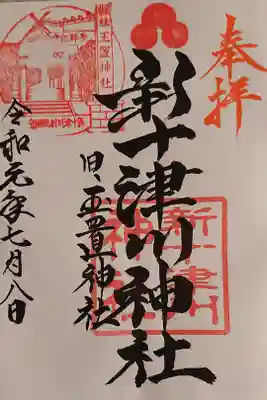 奉拝
新十津川神社
旧、玉置神社
令和元年七月八日
新十津川
神社